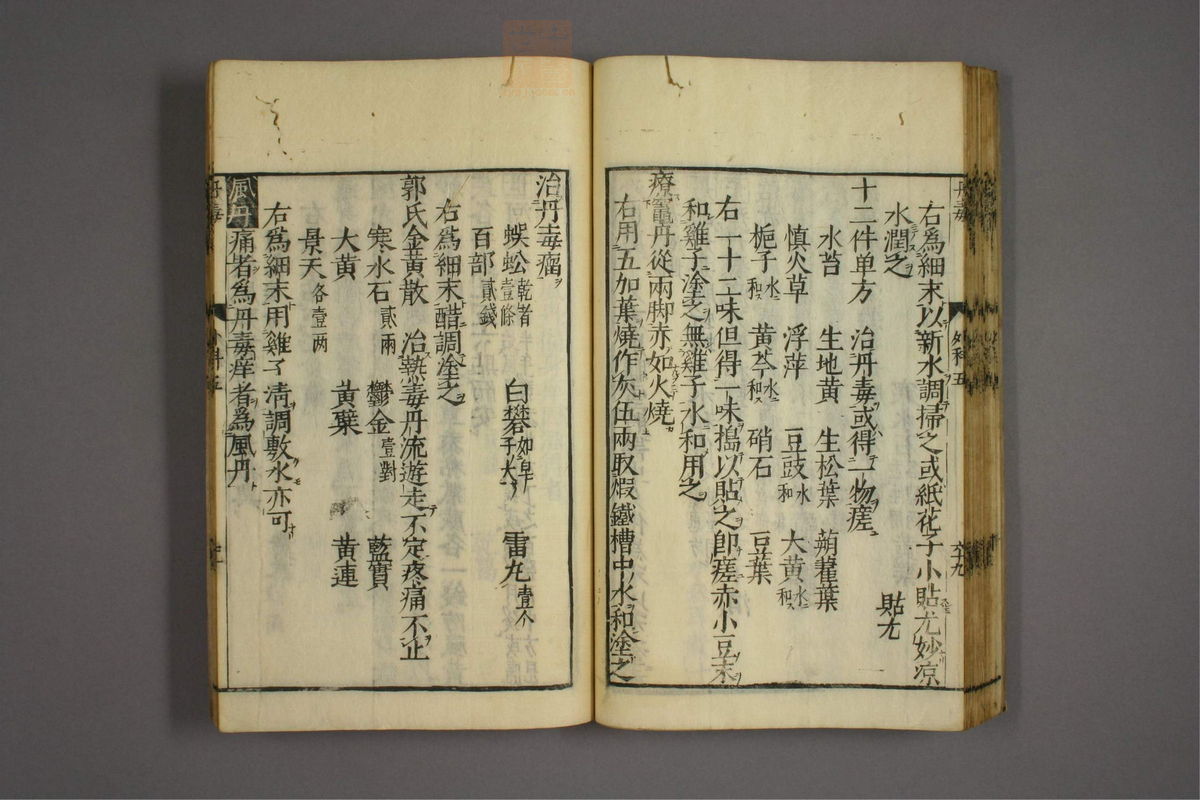 右爲細末以新水調掃之或紙花子小貼尤妙凉
水潤之
貼尤
十二件单方 治丹毒或得一物瘥
水苔 生地黄 生松葉 蒴藋葉
慎火草 浮萍 豆豉水和 大黄水和
梔子水和 黄芩水和 硝石 豆葉
右一十二味但得一味搗以貼之卽瘥赤小豆末
和雞子塗之無雞子水和用之
療竈丹從兩脚赤如火燒
右用五加葉燒作灰伍兩取煆鐵槽中水和塗之
治丹毒瘤
蜈蚣乾者壹條 白礬如皁子大 雷丸壹个
百部貳錢
右爲細末醋調塗之
郭氏金黄散 治熱毒丹流遊走不定疼痛不止
寒水石貳兩 鬱金壹對 藍實
大黄 黄蘗 黄連
景天各壹两
右爲細末用雞子清調敷水亦可
風丹痛者爲丹毒痒者爲風丹